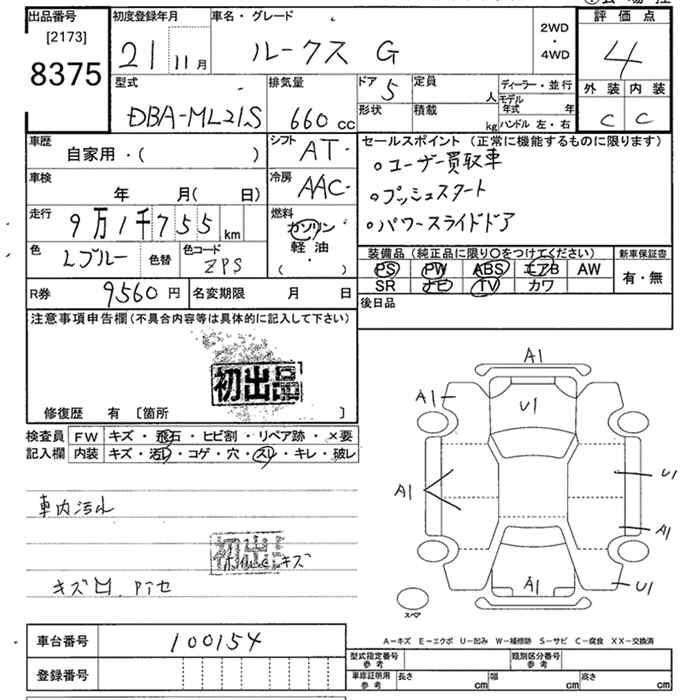 出品番号 初度登録年月 車名・グレード 評価点
[2173] 2WD
8375 21 11月 ルークス G ・ 4WD 4
型式 排気量 ドア 5 定員 人 ディーラー・並行 外装 内装
DBA-ML21S 660cc 形状 積載 kg モデル年式 年 ハンドル 左・右 C C
車歴 シフト セールスポイント (正常に機能するものに限ります)
自家用・( ) AT・ ○ユーザー買取車
車検 冷房 ○プッシュスタート
年 月( 日) AAC・ ○パワースライドドア
走行 燃料
9万1千755km ガソリン
色 Lブルー 色替 色コード ZPS 軽油
( ・ )
装備品(純正品に限り○をつけてください) 新車保証書
PS PW ABS エアB AW 有・無
SR ナビ TV カワ
R券 9560円 名変期限 月 日 後日品
注意事項申告欄(不具合内容等は具体的に記入して下さい)
初出品
修復歴 有 〔箇所 〕
検査員 FW キズ・飛石・ヒビ割・リペア跡・×要
記入欄 内装 キズ・汚レ・コゲ・穴・スレ・キレ・破レ
A1
A1 U1
A1 U1
A1
A1 U1
スペア
車内汚れ
初出
キズ
キズ
車台番号 100154
登録番号
A-キズ E-エクボ U-凹み W-補修跡 S-サビ C-腐食 XX-交換済
型式指定番号 参考 類別区分番号 参考
車庫証明用 参考 長さ cm 幅 cm 高さ cm